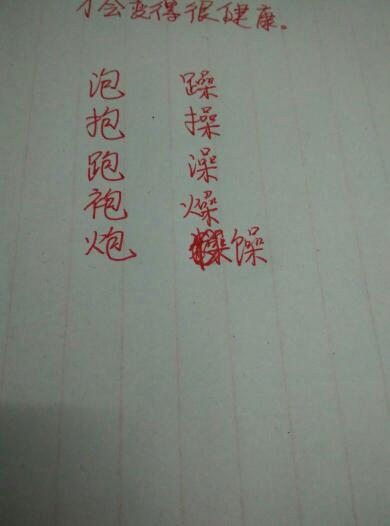 才会变得很健康。
泡 躁
抱 操
跑 澡
袍 燥
炮